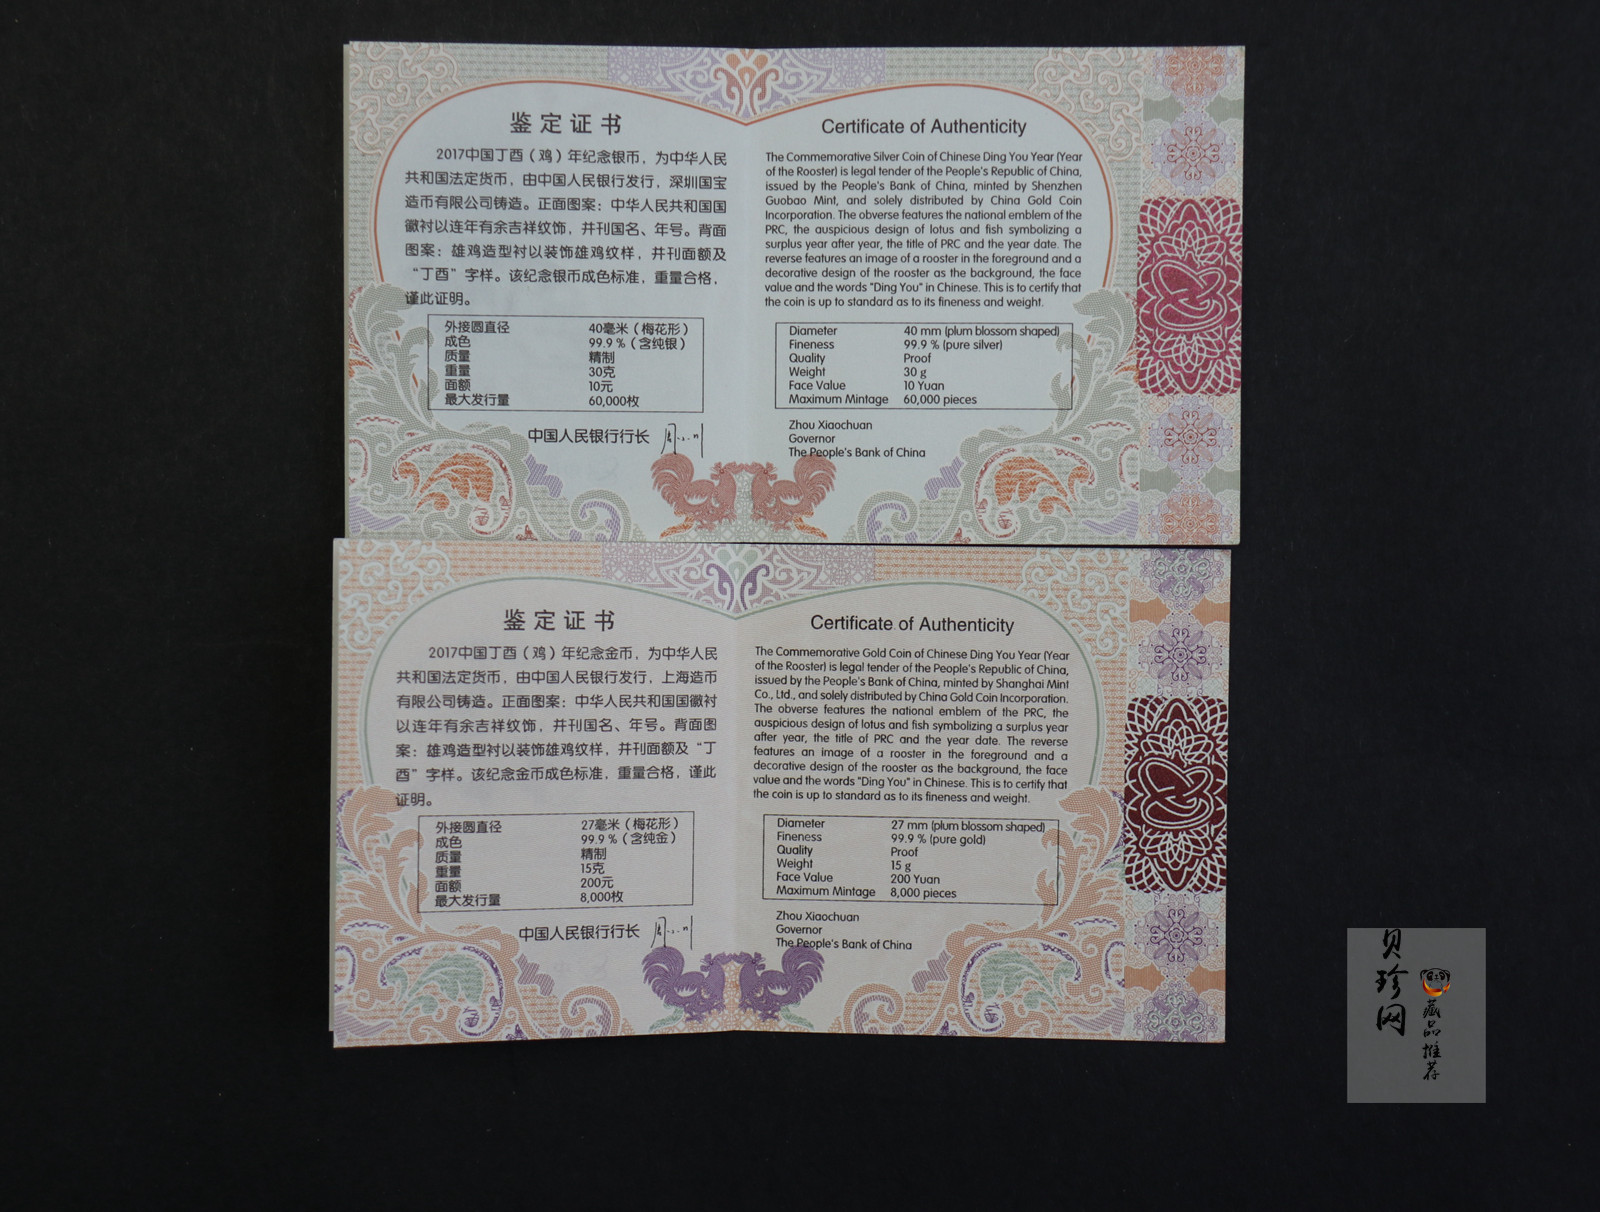 鉴定证书
2017中国丁酉（鸡）年纪念银币，为中华人民
共和国法定货币，由中国人民银行发行，深圳国宝
造币有限公司铸造。正面图案：中华人民共和国国
徽衬以连年有余吉祥纹饰，并刊国名、年号。背面
图案：雄鸡造型衬以装饰雄鸡纹样，并刊面额及
“丁酉”字样。该纪念银币成色标准，重量合格，
谨此证明。
外接圆直径 40毫米（梅花形）
成色 99.9 %（含纯银）
质量 精制
重量 30克
面额 10元
最大发行量 60,000枚
中国人民银行行长
Certificate of Authenticity
The Commemorative Silver Coin of Chinese Ding You Year (Year
of the Rooster) is legal tender of the People's Republic of China,
issued by the People's Bank of China, minted by Shenzhen
Guobao Mint, and solely distributed by China Gold Coin
Incorporation. The obverse features the national emblem of the
PRC, the auspicious design of lotus and fish symbolizing a
surplus year after year, the title of PRC and the year date. The
reverse features an image of a rooster in the foreground and a
decorative design of the rooster as the background, the face
value and the words "Ding You" in Chinese. This is to certify that
the coin is up to standard as to its fineness and weight.
Diameter 40 mm (plum blossom shaped)
Fineness 99.9 % (pure silver)
Quality Proof
Weight 30 g
Face Value 10 Yuan
Maximum Mintage 60,000 pieces
Zhou Xiaochuan
Governor
The People's Bank of China
鉴定证书
2017中国丁酉（鸡）年纪念金币，为中华人民
共和国法定货币，由中国人民银行发行，上海造币
有限公司铸造。正面图案：中华人民共和国国徽衬
以连年有余吉祥纹饰，并刊国名、年号。背面图
案：雄鸡造型衬以装饰雄鸡纹样，并刊面额及“丁
酉”字样。该纪念金币成色标准，重量合格，谨此
证明。
外接圆直径 27毫米（梅花形）
成色 99.9 %（含纯金）
质量 精制
重量 15克
面额 200元
最大发行量 8,000枚
中国人民银行行长
Certificate of Authenticity
The Commemorative Gold Coin of Chinese Ding You Year (Year
of the Rooster) is legal tender of the People's Republic of China,
issued by the People's Bank of China, minted by Shanghai Mint
Co., Ltd., and solely distributed by China Gold Coin Incorporation.
The obverse features the national emblem of the PRC, the
auspicious design of lotus and fish symbolizing a surplus year
after year, the title of PRC and the year date. The reverse
features an image of a rooster in the foreground and a
decorative design of the rooster as the background, the face
value and the words "Ding You" in Chinese. This is to certify that
the coin is up to standard as to its fineness and weight.
Diameter 27 mm (plum blossom shaped)
Fineness 99.9 % (pure gold)
Quality Proof
Weight 15 g
Face Value 200 Yuan
Maximum Mintage 8,000 pieces
Zhou Xiaochuan
Governor
The People's Bank of China
贝珍网
藏品推荐